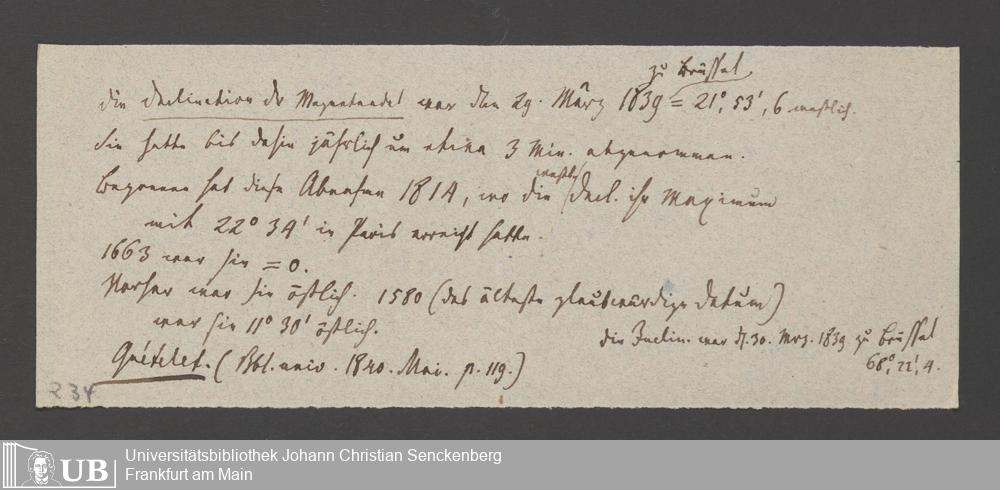 zu Brüssel
die Declination der Magnetnadel war den 29. März 1839 = 21°, 53', 6 westlich.
Sie hatte bis dahin jährlich um etwa 3 Min. abgenommen.
westliche
Begonnen hat diese Abnahme 1814, wo die Decl. ihr Maximum
mit 22° 34' in Paris erreicht hatte.
1663 war sie = 0.
Vorher war sie östlich. 1580 (das älteste glaubwürdige Datum)
war sie 11° 30' östlich.
die Inclin. war d. 30. Mrz. 1839 zu Brüssel
68°, 22', 4.
Quételet. (Bbl. univ. 1840. Mai. p. 119.)
234
UB
Universitätsbibliothek Johann Christian Senckenberg
Frankfurt am Main